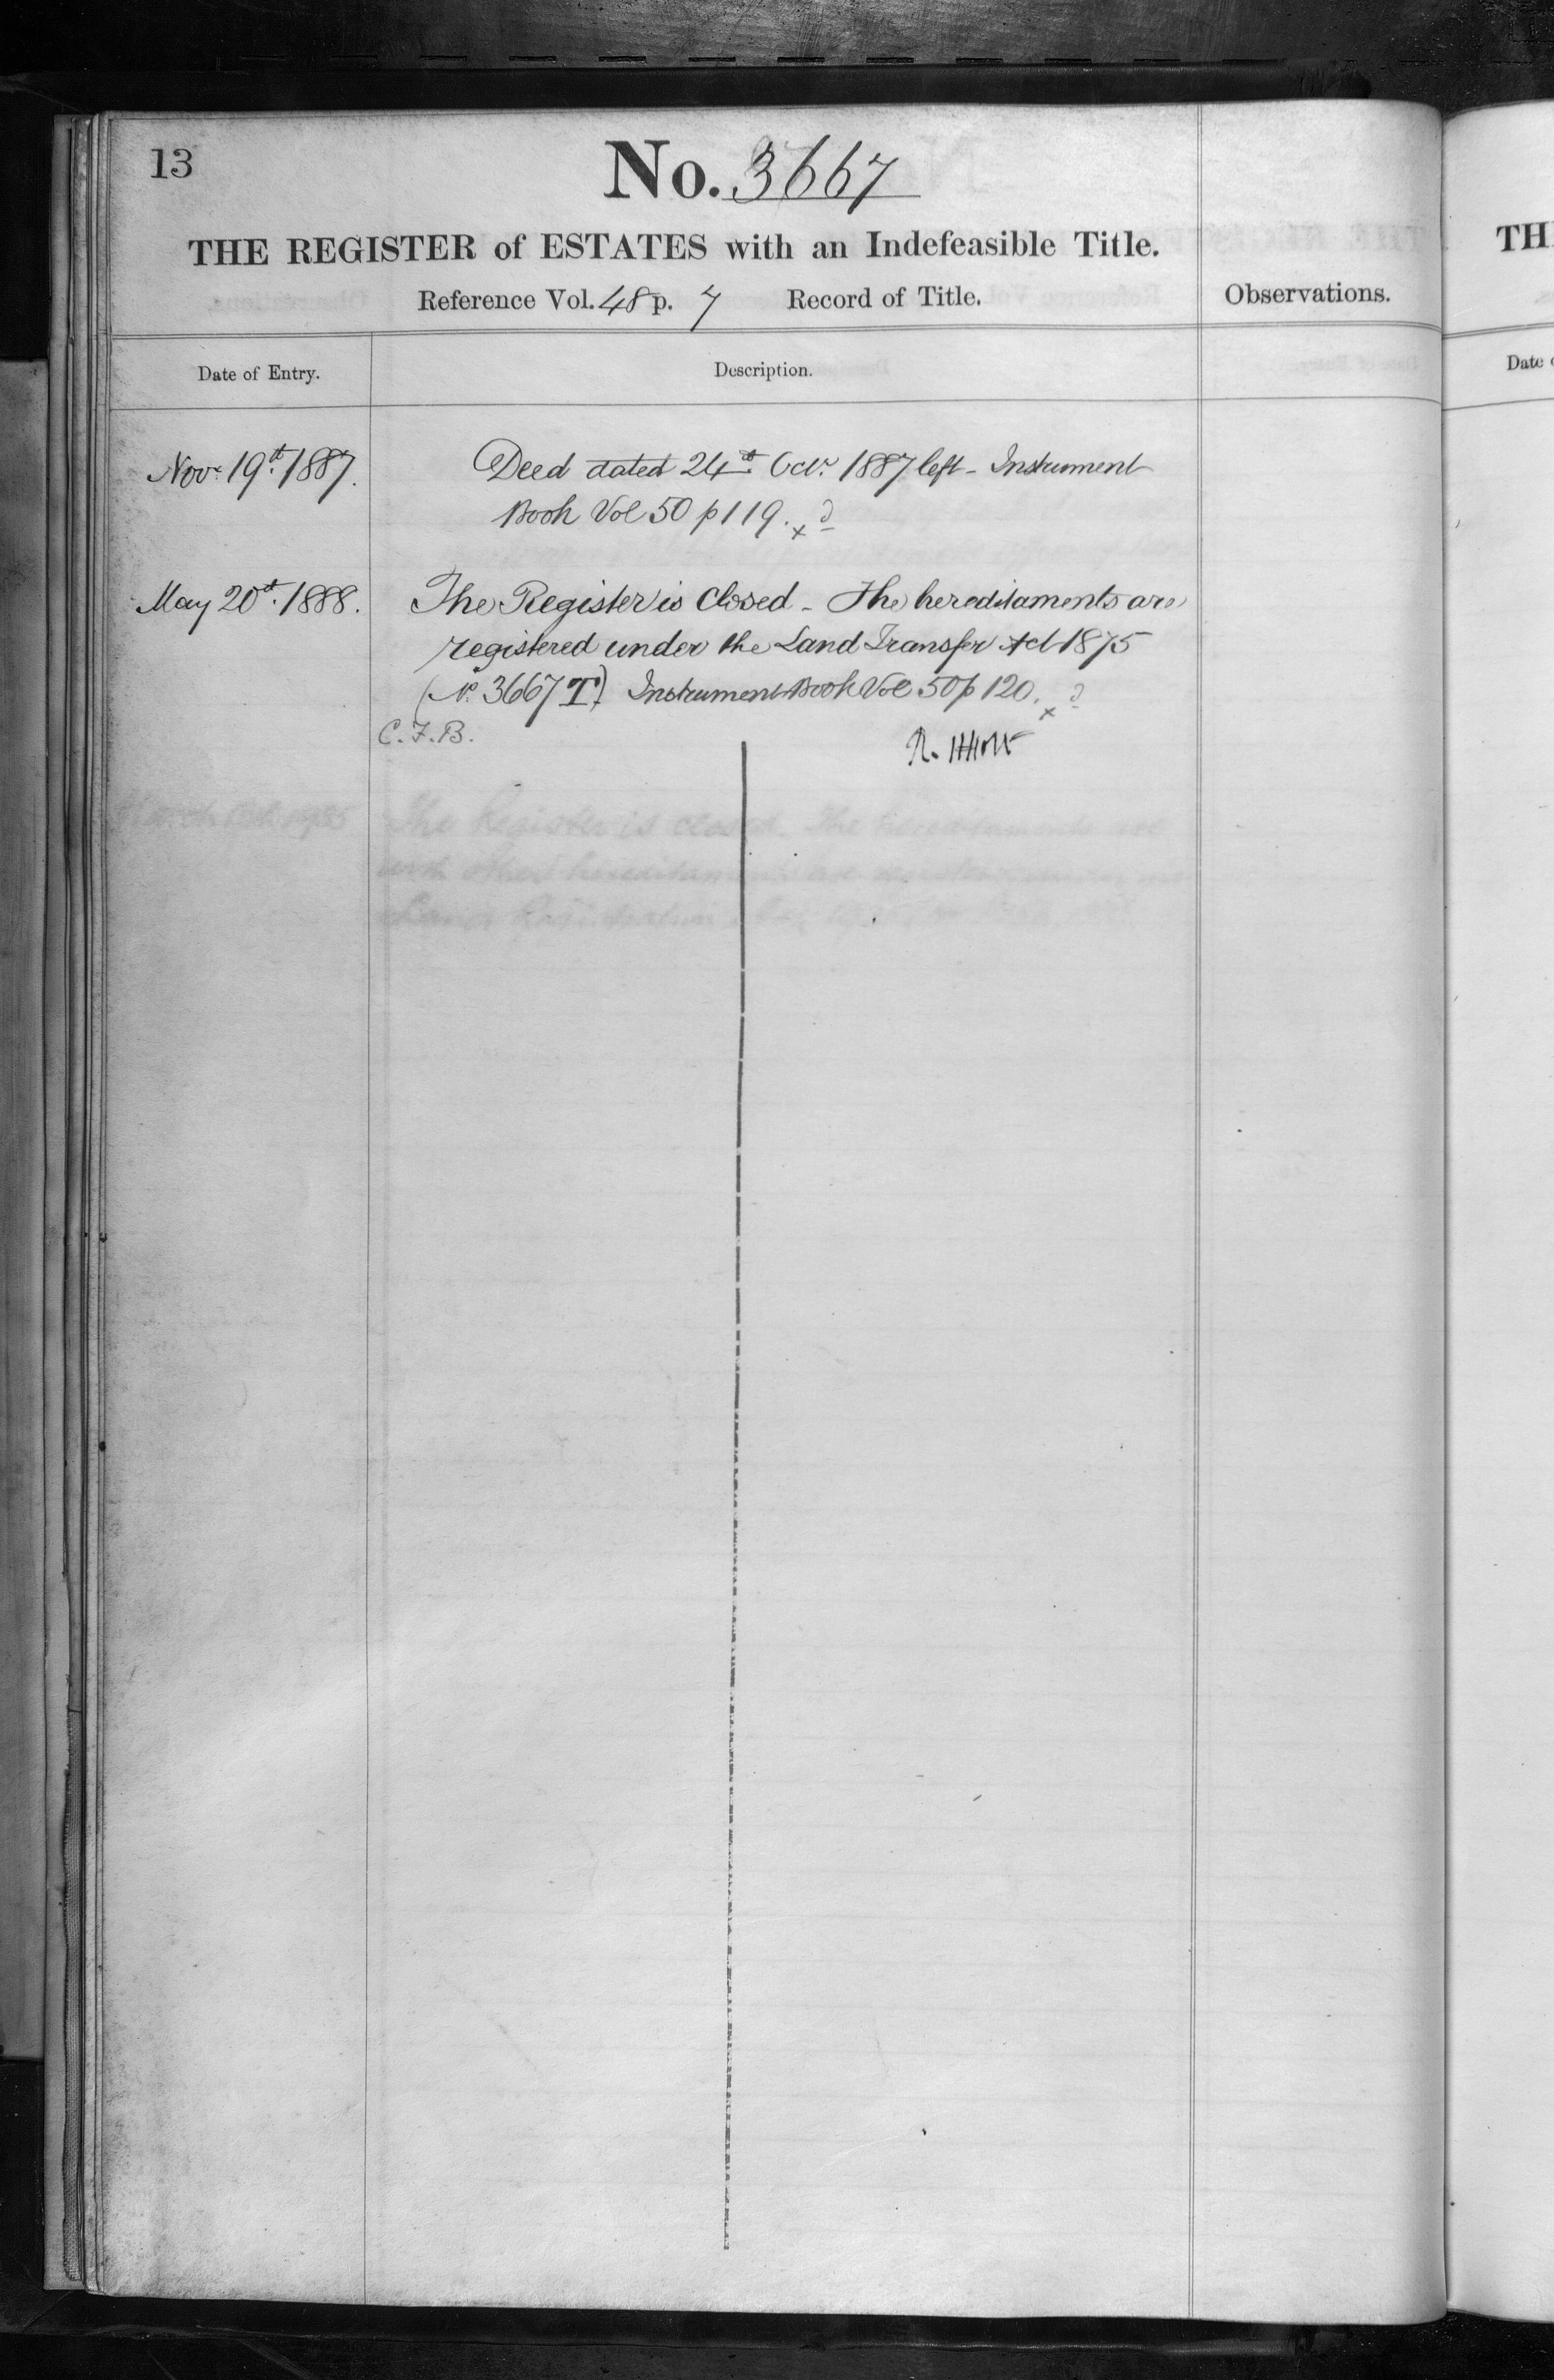 13
No. 3667
THE REGISTER of ESTATES with an Indefeasible Title.
Reference Vol. 48 p. 7 Record of Title.
Observations.
Date of Entry.
Description.
Novr 19th 1887.
Deed dated 24th Octr 1887 left - Instrument
Book Vol 50 p 119. x
May 20th 1888.
The Register is Closed - The hereditaments are
registered under the Land Transfer Act 1875
(No. 3667 T) Instrument Book Vol 50 p 120. x
C.F.B.
TH
Date